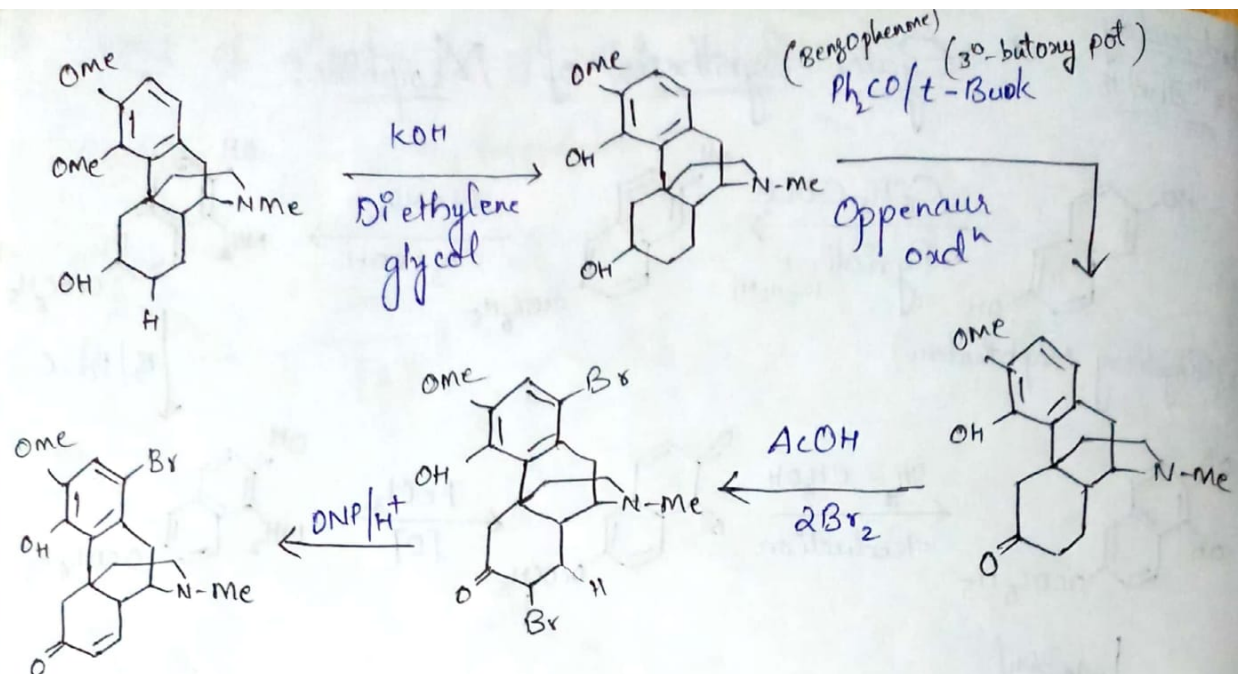 OMe
OMe
OH
H
N Me
KOH
Diethylene
glycol
OMe
OH
OH
N-Me
(Benzophenone)
(3°-butoxy pot)
Ph2CO/t-BuOK
Oppenaur
oxdn
OMe
OH
O
N-Me
AcOH
2Br2
OMe
Br
OH
N-Me
O
H
Br
DNP/H+
OMe
Br
OH
N-Me
O